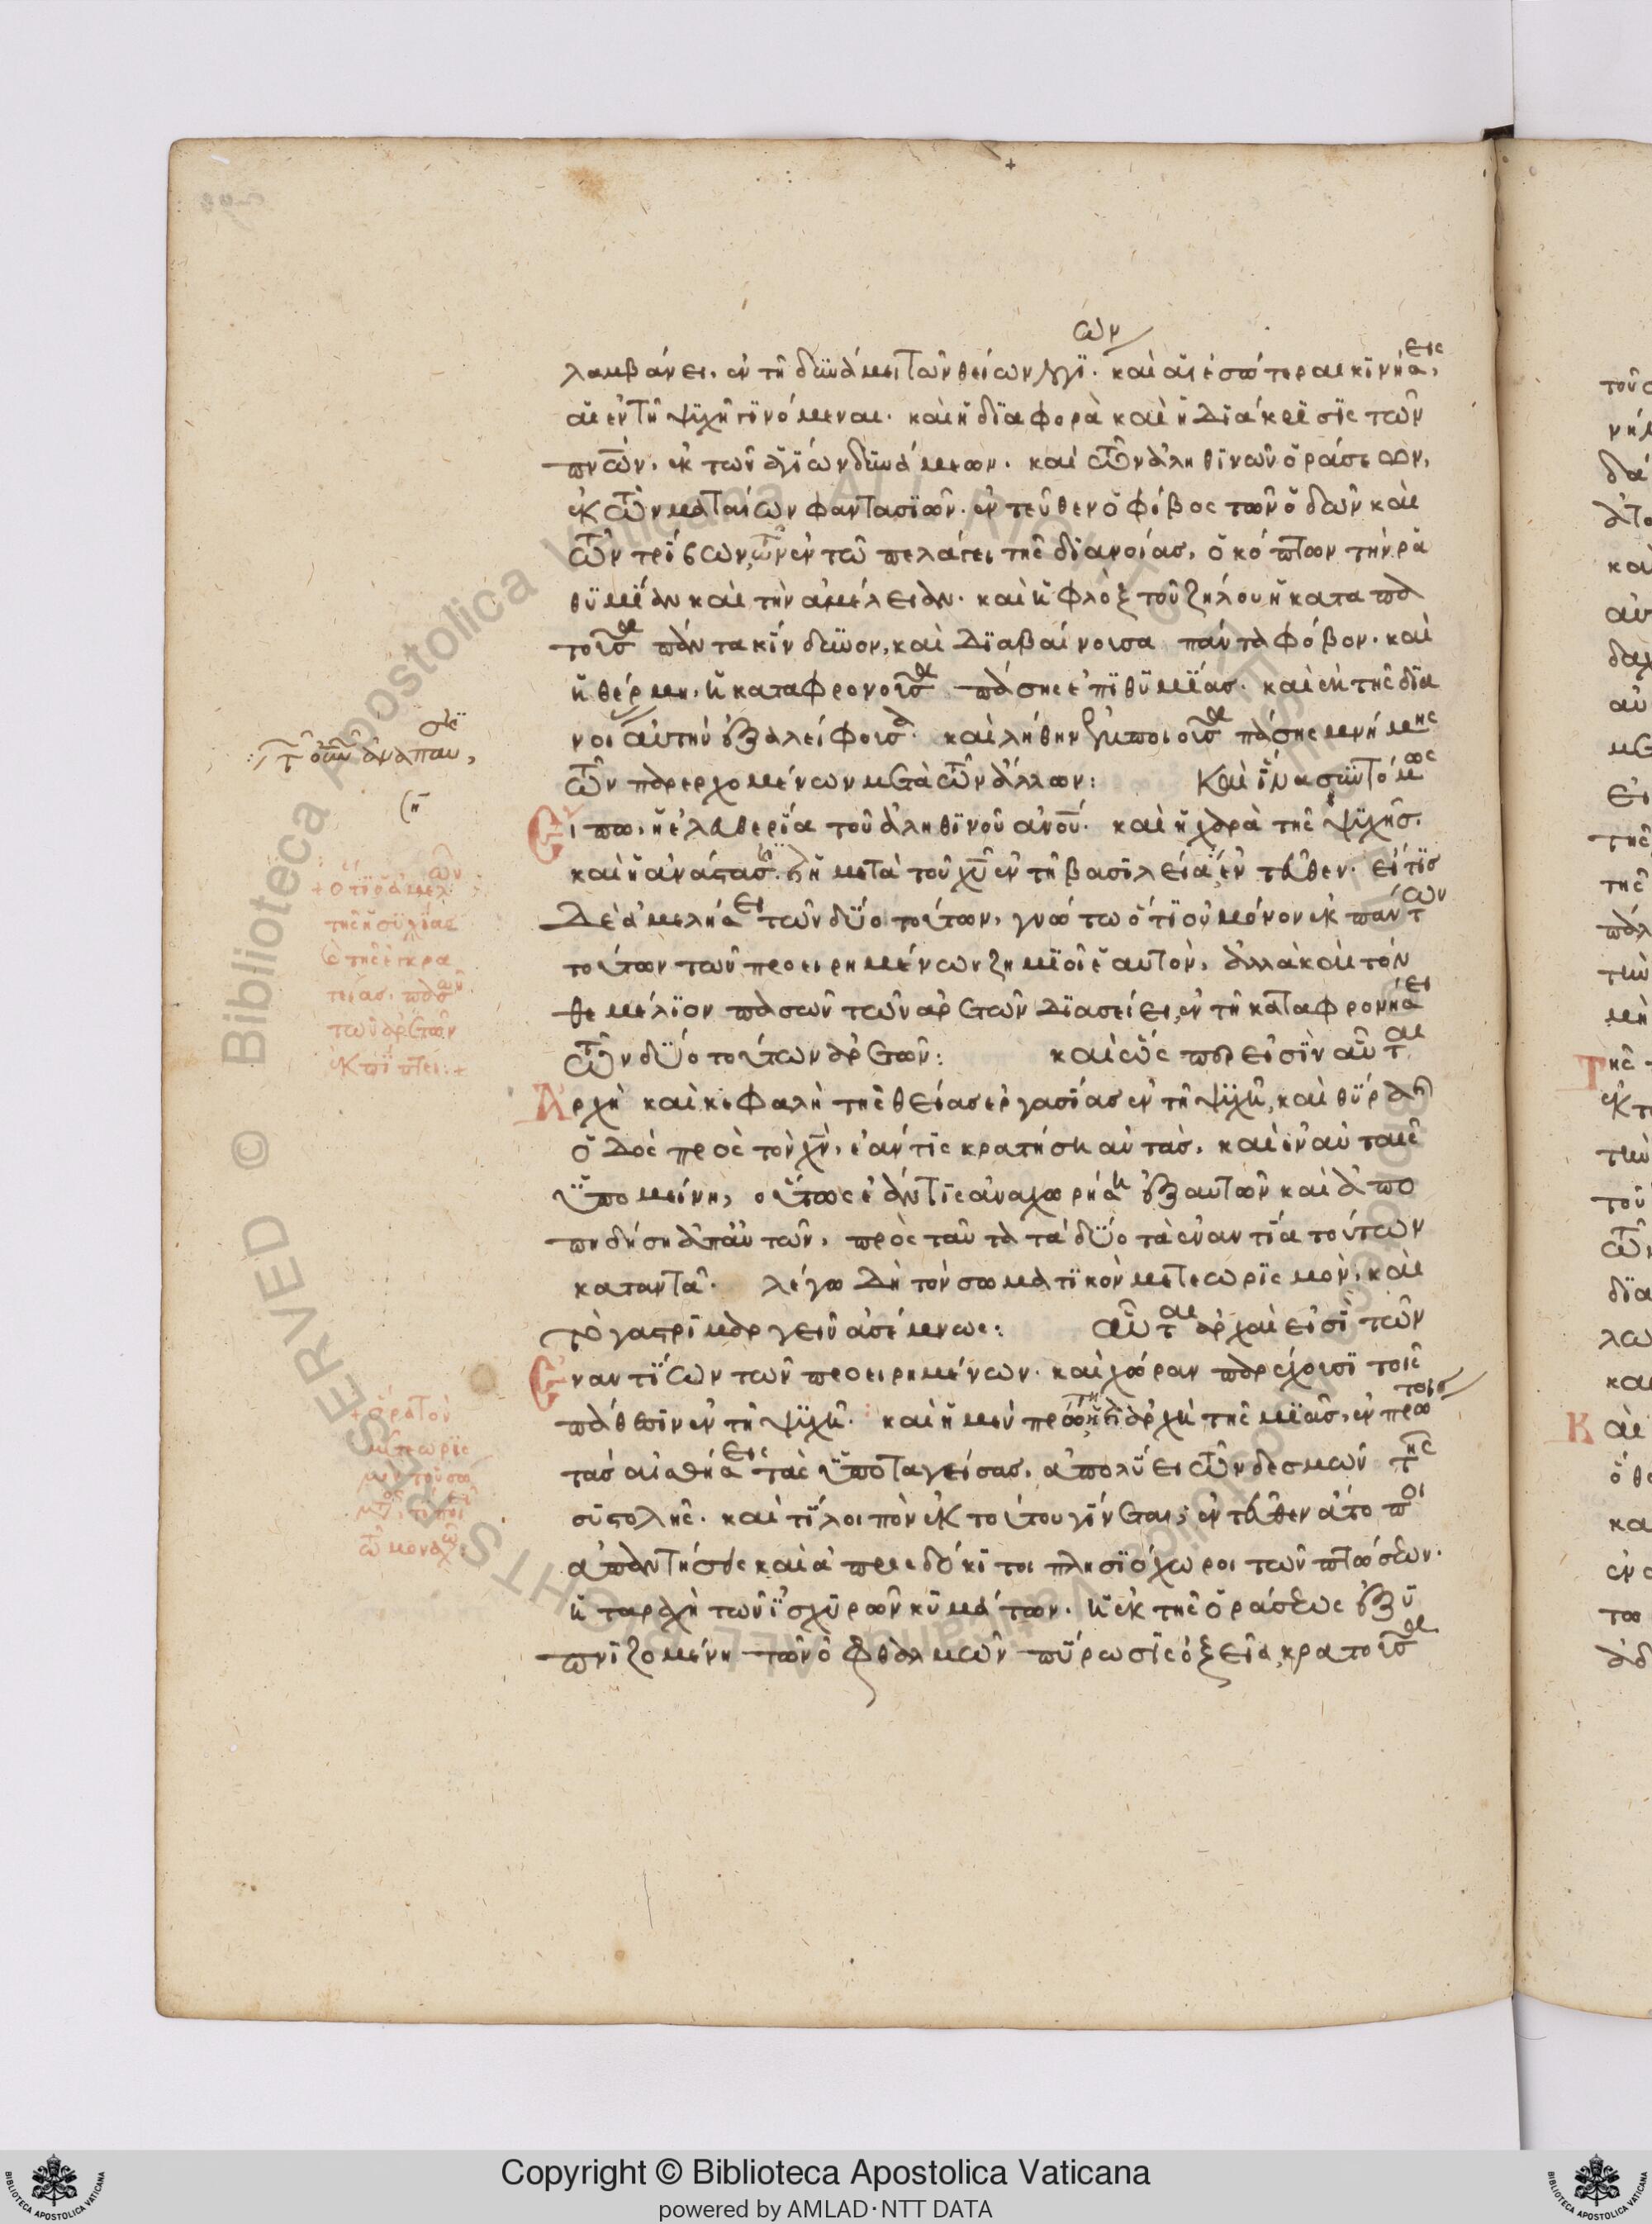 ων
λαμβάνει. ἐν τῇ δυνάμει τῶν θείων λογί. καὶ αἱ ἐσώτεραι κινήσεις,
αἱ ἐν τῇ ψυχῇ γινόμεναι. καὶ ἡ διαφορὰ καὶ ἡ διάκρισις τῶν
πνῶν. ἐκ τῶν ἁγίων δυνάμεων. καὶ τῶν ἀληθινῶν ὁράσεων,
ἐκ τῶν ματαίων φαντασιῶν. ἐντεῦθεν ὁ φόβος τῶν ὁδῶν καὶ
τῶν τρίβων, τῶν ἐν τῷ πελάγει τῆς διανοίας, ὁ κόπτων τὴν ῥα
θυμίαν καὶ τὴν ἀμέλειαν. καὶ ἡ φλὸξ τοῦ ζήλου ἡ καταπα
τοῦσα πάντα κίνδυνον, καὶ διαβαίνουσα πάντα φόβον. καὶ
ἡ θέρμη, ἡ καταφρονοῦσα πάσης ἐπιθυμίας. καὶ ἐκ τῆς δια
νοί αὐτὴν ἐξαλείφουσα. καὶ λήθην ἐμποιοῦσα πάσης μνήμης
τῶν παρερχομένων μετὰ τῶν ἄλλων: Καὶ ἵνα συντόμως
Εἴπω, ἡ ἐλευθερία τοῦ ἀληθινοῦ ἀνου. καὶ ἡ χαρὰ τῆς ψυχῆς.
καὶ ἡ ἀνάστασις ἡ μετὰ τοῦ χυ ἐν τῇ βασιλείᾳ, ἐντεῦθεν. εἴ τις
δὲ ἀμελήσει τῶν δύο τούτων, γνώτω ὅτι οὐ μόνον ἐκ πάντων
τούτων τῶν προειρημένων ζημιοῖ ἑαυτὸν, ἀλλὰ καὶ τὸν
θεμέλιον πασῶν τῶν ἀρετῶν διασείει, ἐν τῇ καταφρονήσει
τῶν δύο τούτων ἀρετῶν: καὶ ὥσπερ εἰσὶν αὗται
Ἀρχὴ καὶ κεφαλὴ τῆς θείας ἐργασίας ἐν τῇ ψυχῇ, καὶ θύρα
ὁδὸς πρὸς τὸν χν, ἐάν τις κρατήσῃ αὐτὰς, καὶ ἐν αὐταῖς
ὑπομείνῃ, οὕτως ἐάν τις ἀναχωρήσῃ ἐξ αὐτῶν καὶ ἀπο
πηδήσῃ ἀπ' αὐτῶν, πρὸς ταῦτα τὰ δύο τὰ ἐναντία τούτων
καταντᾷ. λέγω δὴ τὸν σωματικὸν μετεωρισμὸν, καὶ
τὸ γαστριμαργεῖν ἀσέμνως: αὗται ἀρχαὶ εἰσὶ τῶν
Ἐναντίων τῶν προειρημένων. καὶ χώραν παρέχουσι τοῖς
πάθεσιν ἐν τῇ ψυχῇ. καὶ ἡ μὲν πρώτη ἀρχὴ τῆς μιᾶς, ἐν πρώτοις
τὰς αἰσθήσεις τὰς ὑποταγείσας, ἀπολύει τῶν δεσμῶν τῆς
συστολῆς. καὶ τί λοιπὸν ἐκ τούτου γίνεται; ἐντεῦθεν ἄτοποι
ἀπαντήσεις καὶ ἀπροσδόκητοι πλησιόχωροι τῶν πτώσεων.
ἡ ταραχὴ τῶν ἰσχυρῶν κυμάτων. ἡ ἐκ τῆς ὁράσεως ἐξυ
πνιζομένη τῶν ὀφθαλμῶν πύρωσις ὀξεῖα, κρατοῦσα
+ ὅτι ὁ ἀμελ ῶν
τῆς ἡσυχίας
τῆς ἐγκρα
τείας. πασῶν
τῶν ἀρετῶν
ἐκπίπτει:+
+ ὅρα τὸν
μετεωρισ
μὸν τοῦ σώ